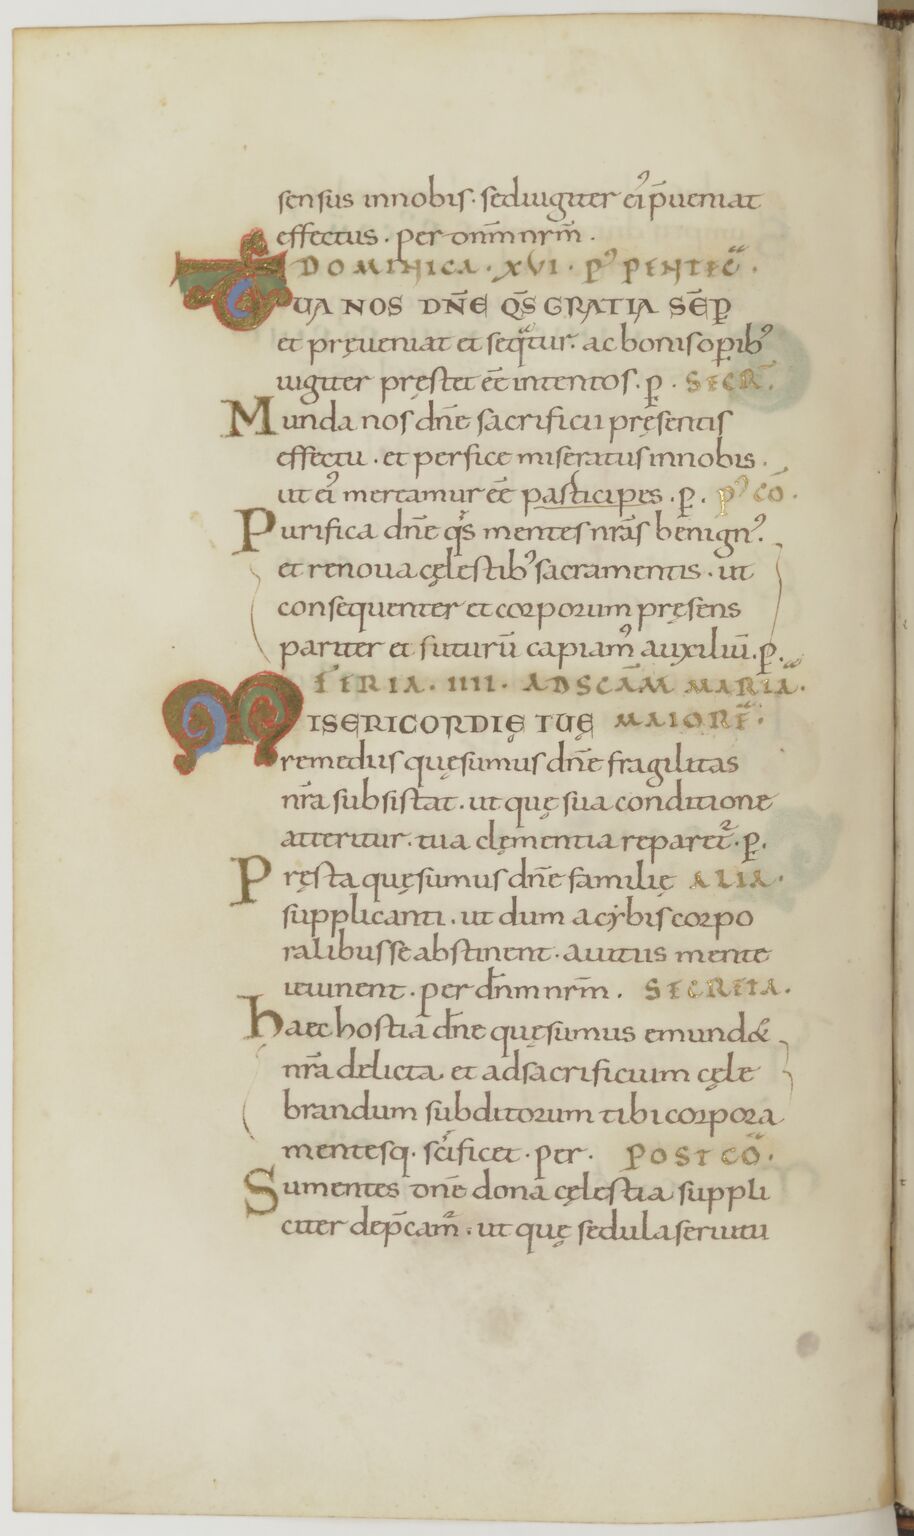 sensus innobis· sed iugiter ei᾽ p̄ueniat
effectus· per dn̄m nrm̄·
DOMINICA·XVI· P᾽ PENTEC̄·
TUA NOS DN̄E QS̄ GRATIA SĒP̱
et pręueniat et seqͣtur· ac bonis op̱ib᾽
iugiter pręstet eē̄ intentos·p̱· SECR̄
Munda nos dn̄e sacrificii pręsentis
effectu· et perfice miseratus innobis·
ut ei᾽ mereamur eē pasticipes·p̱· P᾽ CŌ·
Purifica dn̄e qs̄ mentes nrās benign᾽
et renoua cęlestib᾽ sacramentis· ut
consequenter et corporum pręsens
pariter et futurū capiam᾽ auxiliū·p̱·
FERIA·IIII· AD SCĀM MARIA·
MISERICORDIĘ TUĘ MAIORĒ·
remediis quęsumus dn̄e fragilitas
nrā subsistat· ut quę sua conditione
atteritur· tua clęmentia reparet᾽·p̱·
Pręsta quęsumus dn̄e familię ALIA·
supplicanti· ut dum a cybis corpo
ralibus se abstinent· a uitiis mente
ieiunent· per dn̄m nrm̄· SECRETA·
haec hostia dn̄e quęsumus emund&
nrā delicta et ad sacrificium cęle
brandum subditorum tibi corpora
mentesq· scīficet· per· POST CŌ·
Sumentes dn̄e dona cęlestia suppli
citer dep̄cam᾽· ut quę sedula seruitu